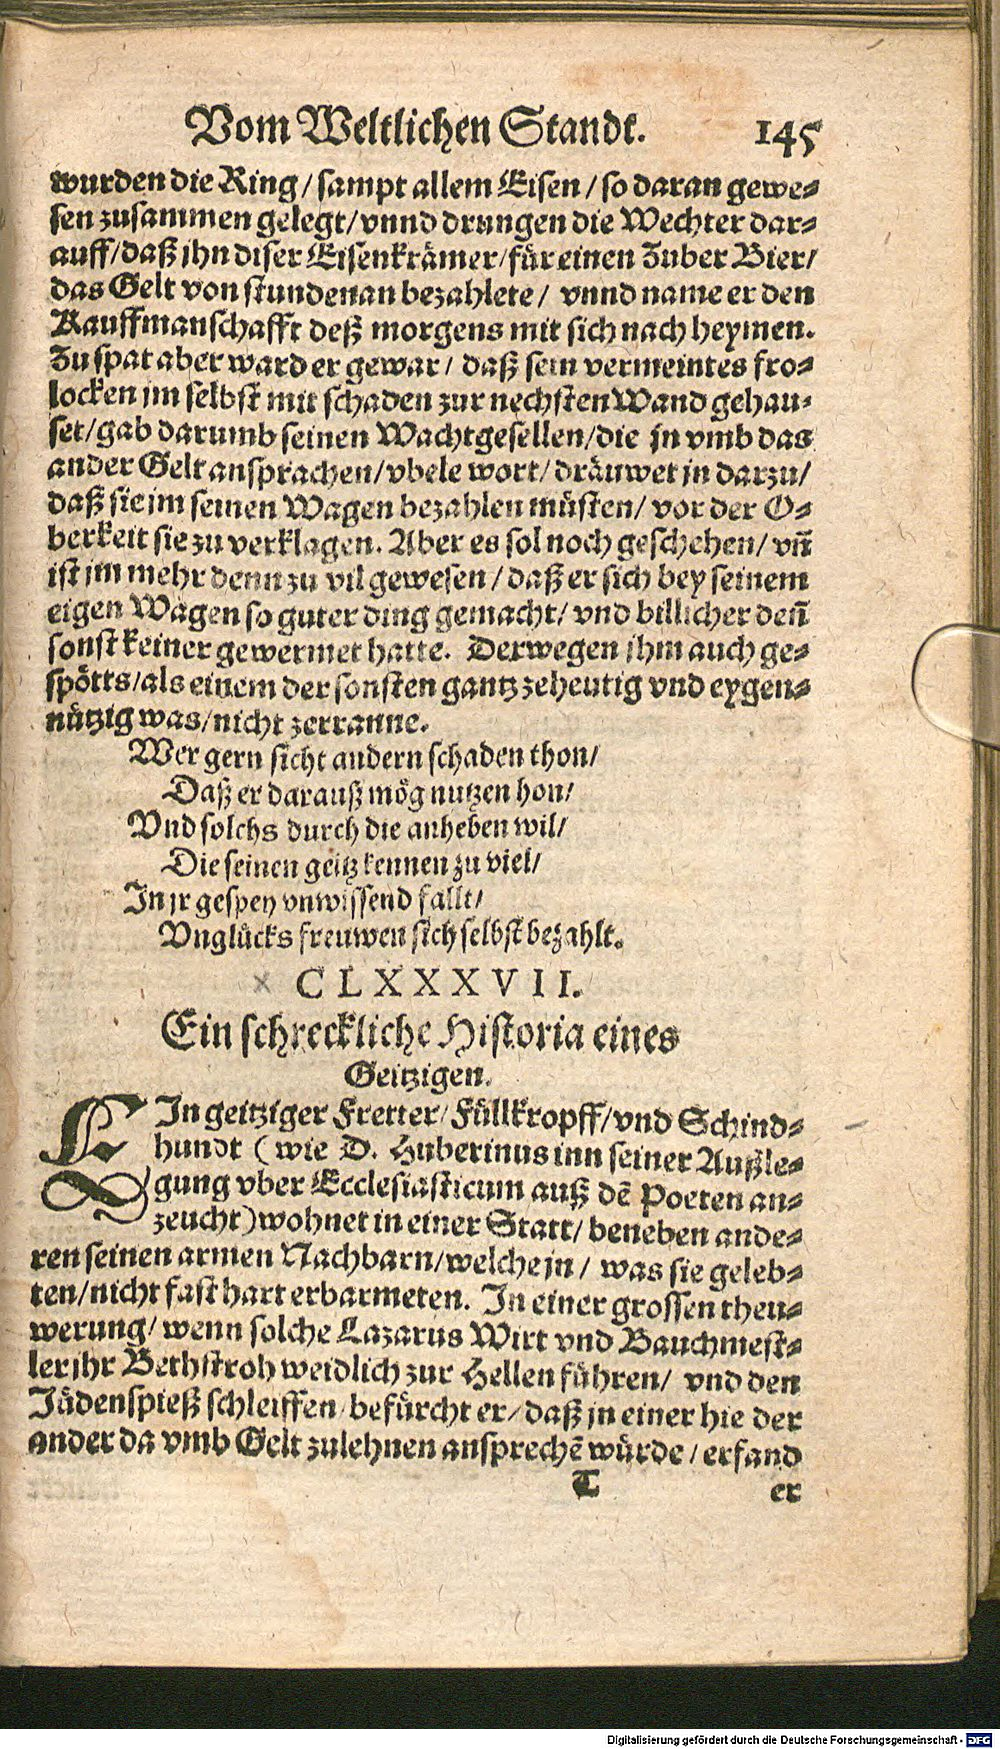 Vom Weltlichen Standt. 145
wurden die Ring/ sampt allem Eisen/ so daran gewe-
sen zusammen gelegt/ vnnd drungen die Wechter dar-
auff/ daß jhn diser Eisenkrämer/ für einen Zuber Bier/
das Gelt von stunden an bezahlete/ vnnd name er den
Kauffmanschafft deß morgens mit sich nach heymen.
Zu spat aber ward er gewar/ daß sein vermeintes fro-
locken jm selbst mit schaden zur nechsten Wand gehau-
set/ gab darumb seinen Wachtgesellen/ die jn vmb das
ander Gelt ansprachen/ vbele wort/ dräuwet jn darzu/
daß sie jm seinen Wagen bezahlen müsten/ vor der O-
berkeit sie zu verklagen. Aber es sol noch geschehen/ vñ
ist jm mehr denn zu vil gewesen/ daß er sich bey seinem
eigen Wagen so guter ding gemacht/ vnd billicher deñ
sonst keiner gewermet hatte. Derwegen jhm auch ge-
spötts/ als einem der sonsten gantz zeheutig vnd eygen-
nützig was/ nicht zerranne.
Wer gern sicht andern schaden thon/
Daß er darauß mög nutzen hon/
Vnd solchs durch die anheben wil/
Die seinen geitz kennen zu viel/
In jr gespey vnwissend fallt/
Vnglücks freuwen sich selbst bezahlt.
CLXXXVII.
Ein schreckliche Historia eines
Geitzigen.
EIn geitziger Fretter/ Füllkropff/ vnd Schind-
hundt (wie D. Huberinus inn seiner Außle-
gung vber Ecclesiasticum auß dẽ Poeten an-
zeucht) wohnet in einer Statt/ beneben ande-
ren seinen armen Nachbarn/ welche jn/ was sie geleb-
ten/ nicht fast hart erbarmeten. In einer grossen theu-
werung/ wenn solche Lazarus Wirt vnd Bauchmest-
ler jhr Bethstroh weidlich zur Hellen führen/ vnd den
Jüdenspieß schleiffen/ befürcht er/ daß jn einer hie der
ander da vmb Gelt zulehnen ansprechẽ würde/ erfand
T er
Digitalisierung gefördert durch die Deutsche Forschungsgemeinschaft - DFG